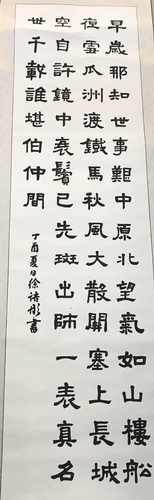 早歲那知世事艱中原北望氣如山樓船
夜雪瓜洲渡鐵馬秋風大散關塞上長城
空自許鏡中衰鬢已先斑出師一表真名
世千載誰堪伯仲間
丁酉夏日徐詩彤書